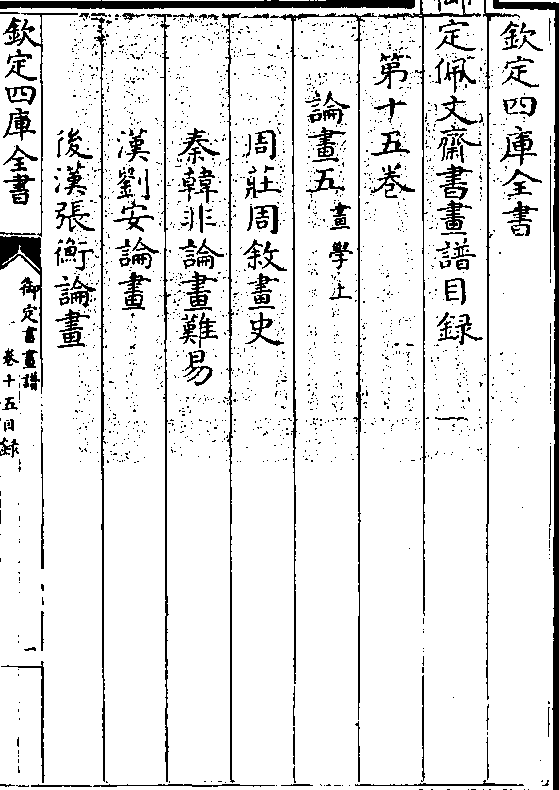 欽定四庫全書
御定佩文齋書畫譜目録
第十五卷
論畫五 畫學上
周莊周敘畫史
秦韓非論畫難易
漢劉安論畫
後漢張衡論畫
欽定四庫全書
御定書畫譜
卷十五目録
一